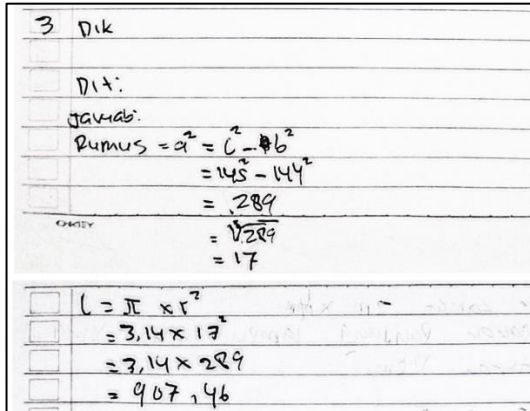 3 Dik
Dit:
Jawab:
Rumus = a² = c² - b²
= 145² - 144²
= 289
= √289
= 17
L = π x r²
= 3,14 x 17²
= 3,14 x 289
= 907,46